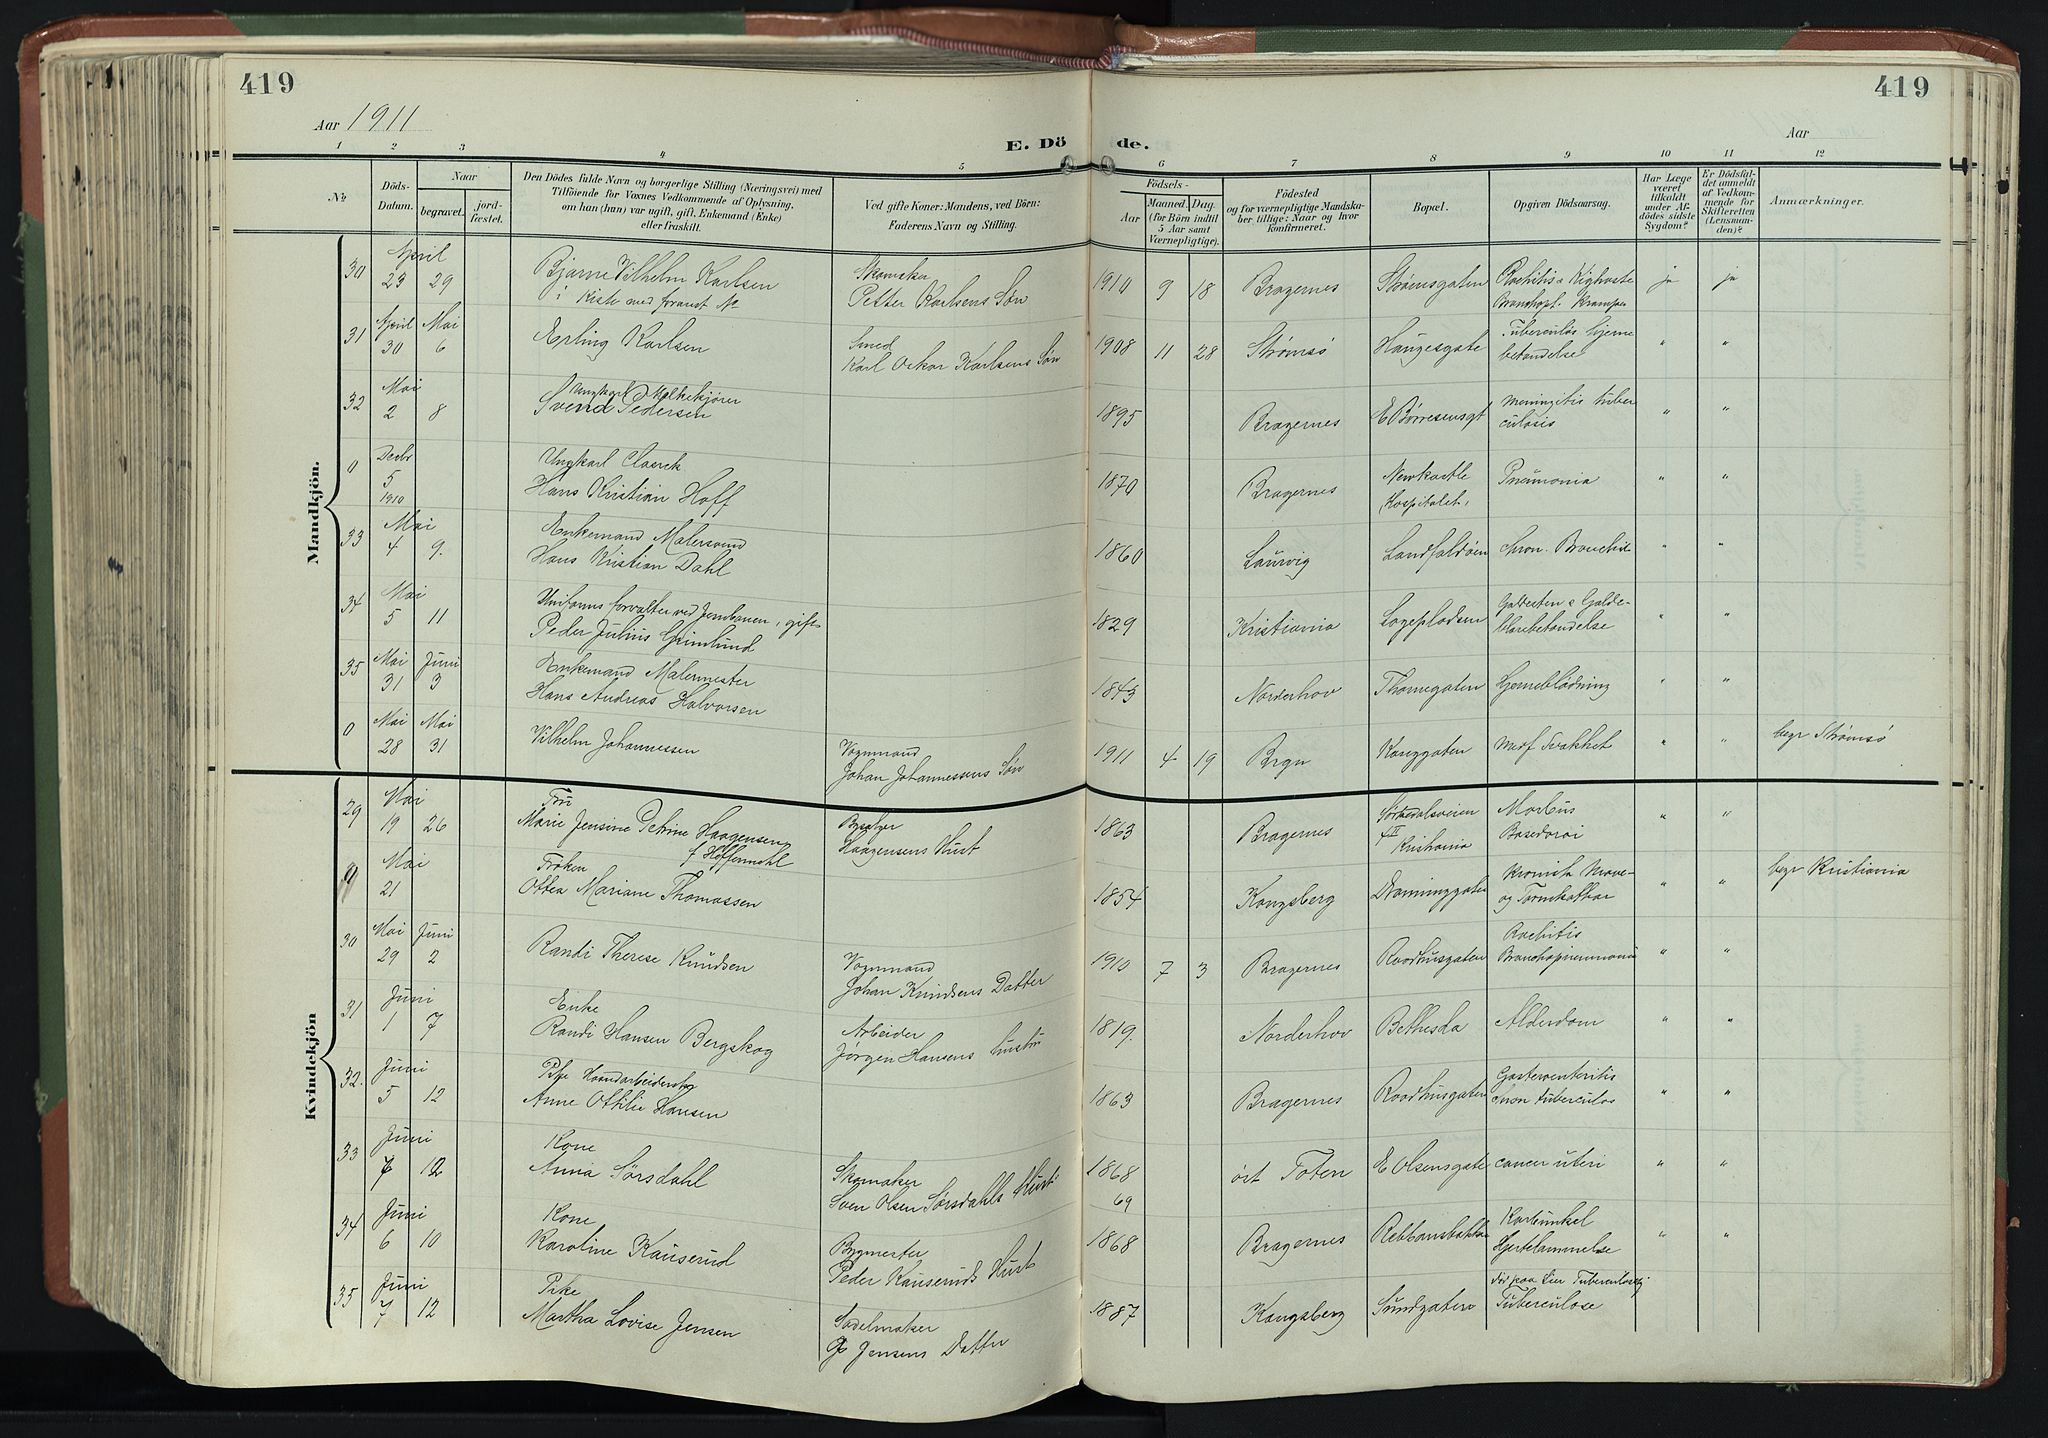 419
419
Aar 1911
Aar
E. Dö de.
1 2 3 4 5 6 7 8 9 10 11 12
№
Döds-
Datum.
Naar
begravet.
jord-
fæstet.
Den Dödes fulde Navn og borgerlige Stilling (Næringsvei) med
Tilföiende for Voxnes Vedkommende af Oplysning,
om han (hun) var ugift, gift, Enkemand (Enke)
eller fraskilt.
Ved gifte Koner: Mandens, ved Börn:
Faderens Navn og Stilling.
Födsels-
Aar
Maaned. Dag.
(for Börn indtil
5 Aar samt
Værnepligtige).
Födested
og for værnepligtige Mandska-
ber tillige: Naar og hvor
konfirmeret.
Bopæl.
Opgiven Dödsaarsag.
Har Læge
været
tilkaldt
under Af-
dödes sidste
Sygdom?
Er Dödsfal-
det anmeldt
af Vedkom-
mende for
Skifteretten
(Lensman-
den)?
Anmærkninger.
Mandkjön.
30 April 23 29 Bjarne Vilhelm Karlsen
i Kiste med forannt №
Skomaker
Petter Karlsens Søn
1910 9 18 Bragernes Strømsgaten Rachitis Kighoste
Bronchopt. Kramper
ja ja
31 April 30 Mai 6 Erling Karlsen
Smed
Karl Oskar Karlsens Søn
1908 11 28 Strømsø Haugesgate Tuberculøs Hjerne
betændelse " "
32 Mai 2 8 Ungkarl Melkekjører
Svend Pedersen
1895 Bragernes E Børresensgt Meningitis tuber
culosis " "
0 Decbr 5 1910 Ungkarl
Hans Kristian Hoff
1870 Bragernes Newkastle
Hospitalet,
Pneumonia " "
33 Mai 4 9. Enkemand Malersvend
Hans Kristian Dahl
1860 Laurvig Landfaldøen chron. Bronchit " "
34 Mai 5 11 Uniformsforvalter ved Jernbanen, gift
Peder Julius Grimlund
1829 Kristiania Logepladsen Galdesten & Galde-
blærebetændelse " "
35 Mai 31 Juni 3 Enkemand Malermester
Hans Andreas Halvorsen
1843 Norderhov Thomegaten Hjerneblødning " "
0 Mai 28 Mai 31 Vilhelm Johannessen
Vognmand
Johan Johannessens Søn
1911 4 19 Brgn Konggaten medf Svakhet " " begr Strømsø
Kvindekjön
29 Mai 19 26 Fru
Marie Jensine Petrine Haagensen
f Hoffenmehl
Haagensens Hust
1863 Bragernes Sørkedalsveien
Kristiania
Morbus
Basedowi " "
0 Mai 21 Frøken
Otten Mariane Thomassen
1854 Kongsberg Dronninggaten Kronisk Mave-
og Tarmkatthar " " begr Kristiania
30 Mai 29 Juni 2 Randi Therese Knudsen
Vognmand
Johan Knudsens Datter
1910 7 3 Bragernes Raadhusgaten Rachitis
Bronchopneumonia " "
31 Juni 1 7 Enke
Randi Hansen Bergskog
Arbeider
Jørgen Hansens hustru
1819. Norderhov Bethesda Alderdom " "
32. Juni 5 12 Pike Haandarbeiderske
Anne Ottilie Hansen
1863 Bragernes Raadhusgaten Gasteroenteritis
chron tuberculos " "
33 Juni 7 12 Kone
Anna Sørsdahl
Skomaker
Sven Olsen Sørsdahls Hust
1868
69
øst Toten E Olsensgate cancer uteri " "
34 Juni 6 10 Kone
Karoline Kauserud
Bygmester
Peder Kauseruds Hust
1868 Bragernes Rebbansbakken Karbunkel
Hjertelammelse " "
35 Juni 7 12 Pike
Martha Lovise Jensen
Sadelmaker
Jensens Datter
1887 Kongsberg Sundgaten død paa Lier Tuberculosehj
Tuberculose